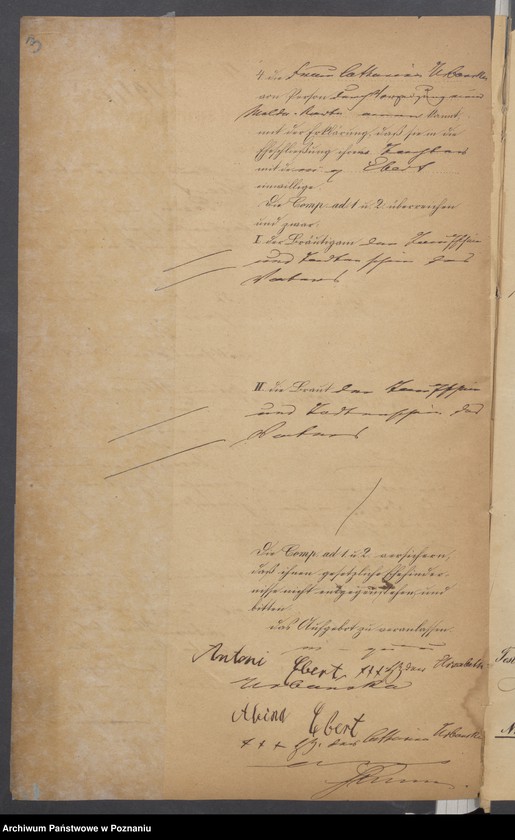 3
4. die Frau Catharina Urbanska
von Person durch Vorzeigung einer
Melde-Karte bekannt,
mit der Erklärung, daß sie in die
Eheschließung ihrer Tochter
mit dem p Ebert
einwillige.
Die Comp. ad 1 u. 2 überreichen
und zwar:
I. der Bräutigam den Taufschein
und Todtenschein des
Vaters
II. die Braut den Taufschein
und Todtenschein des
Vaters
Die Comp. ad 1 u. 2 versichern,
daß ihnen gesetzliche Ehehinder-
nisse nicht entgegenstehen, und
bitten
das Aufgebot zu veranlassen.
Antoni Ebert +++ Hz. der
Urbanska
Ebert
+++ Hz. der Catharina Urbanska
Archiwum Państwowe w Poznaniu